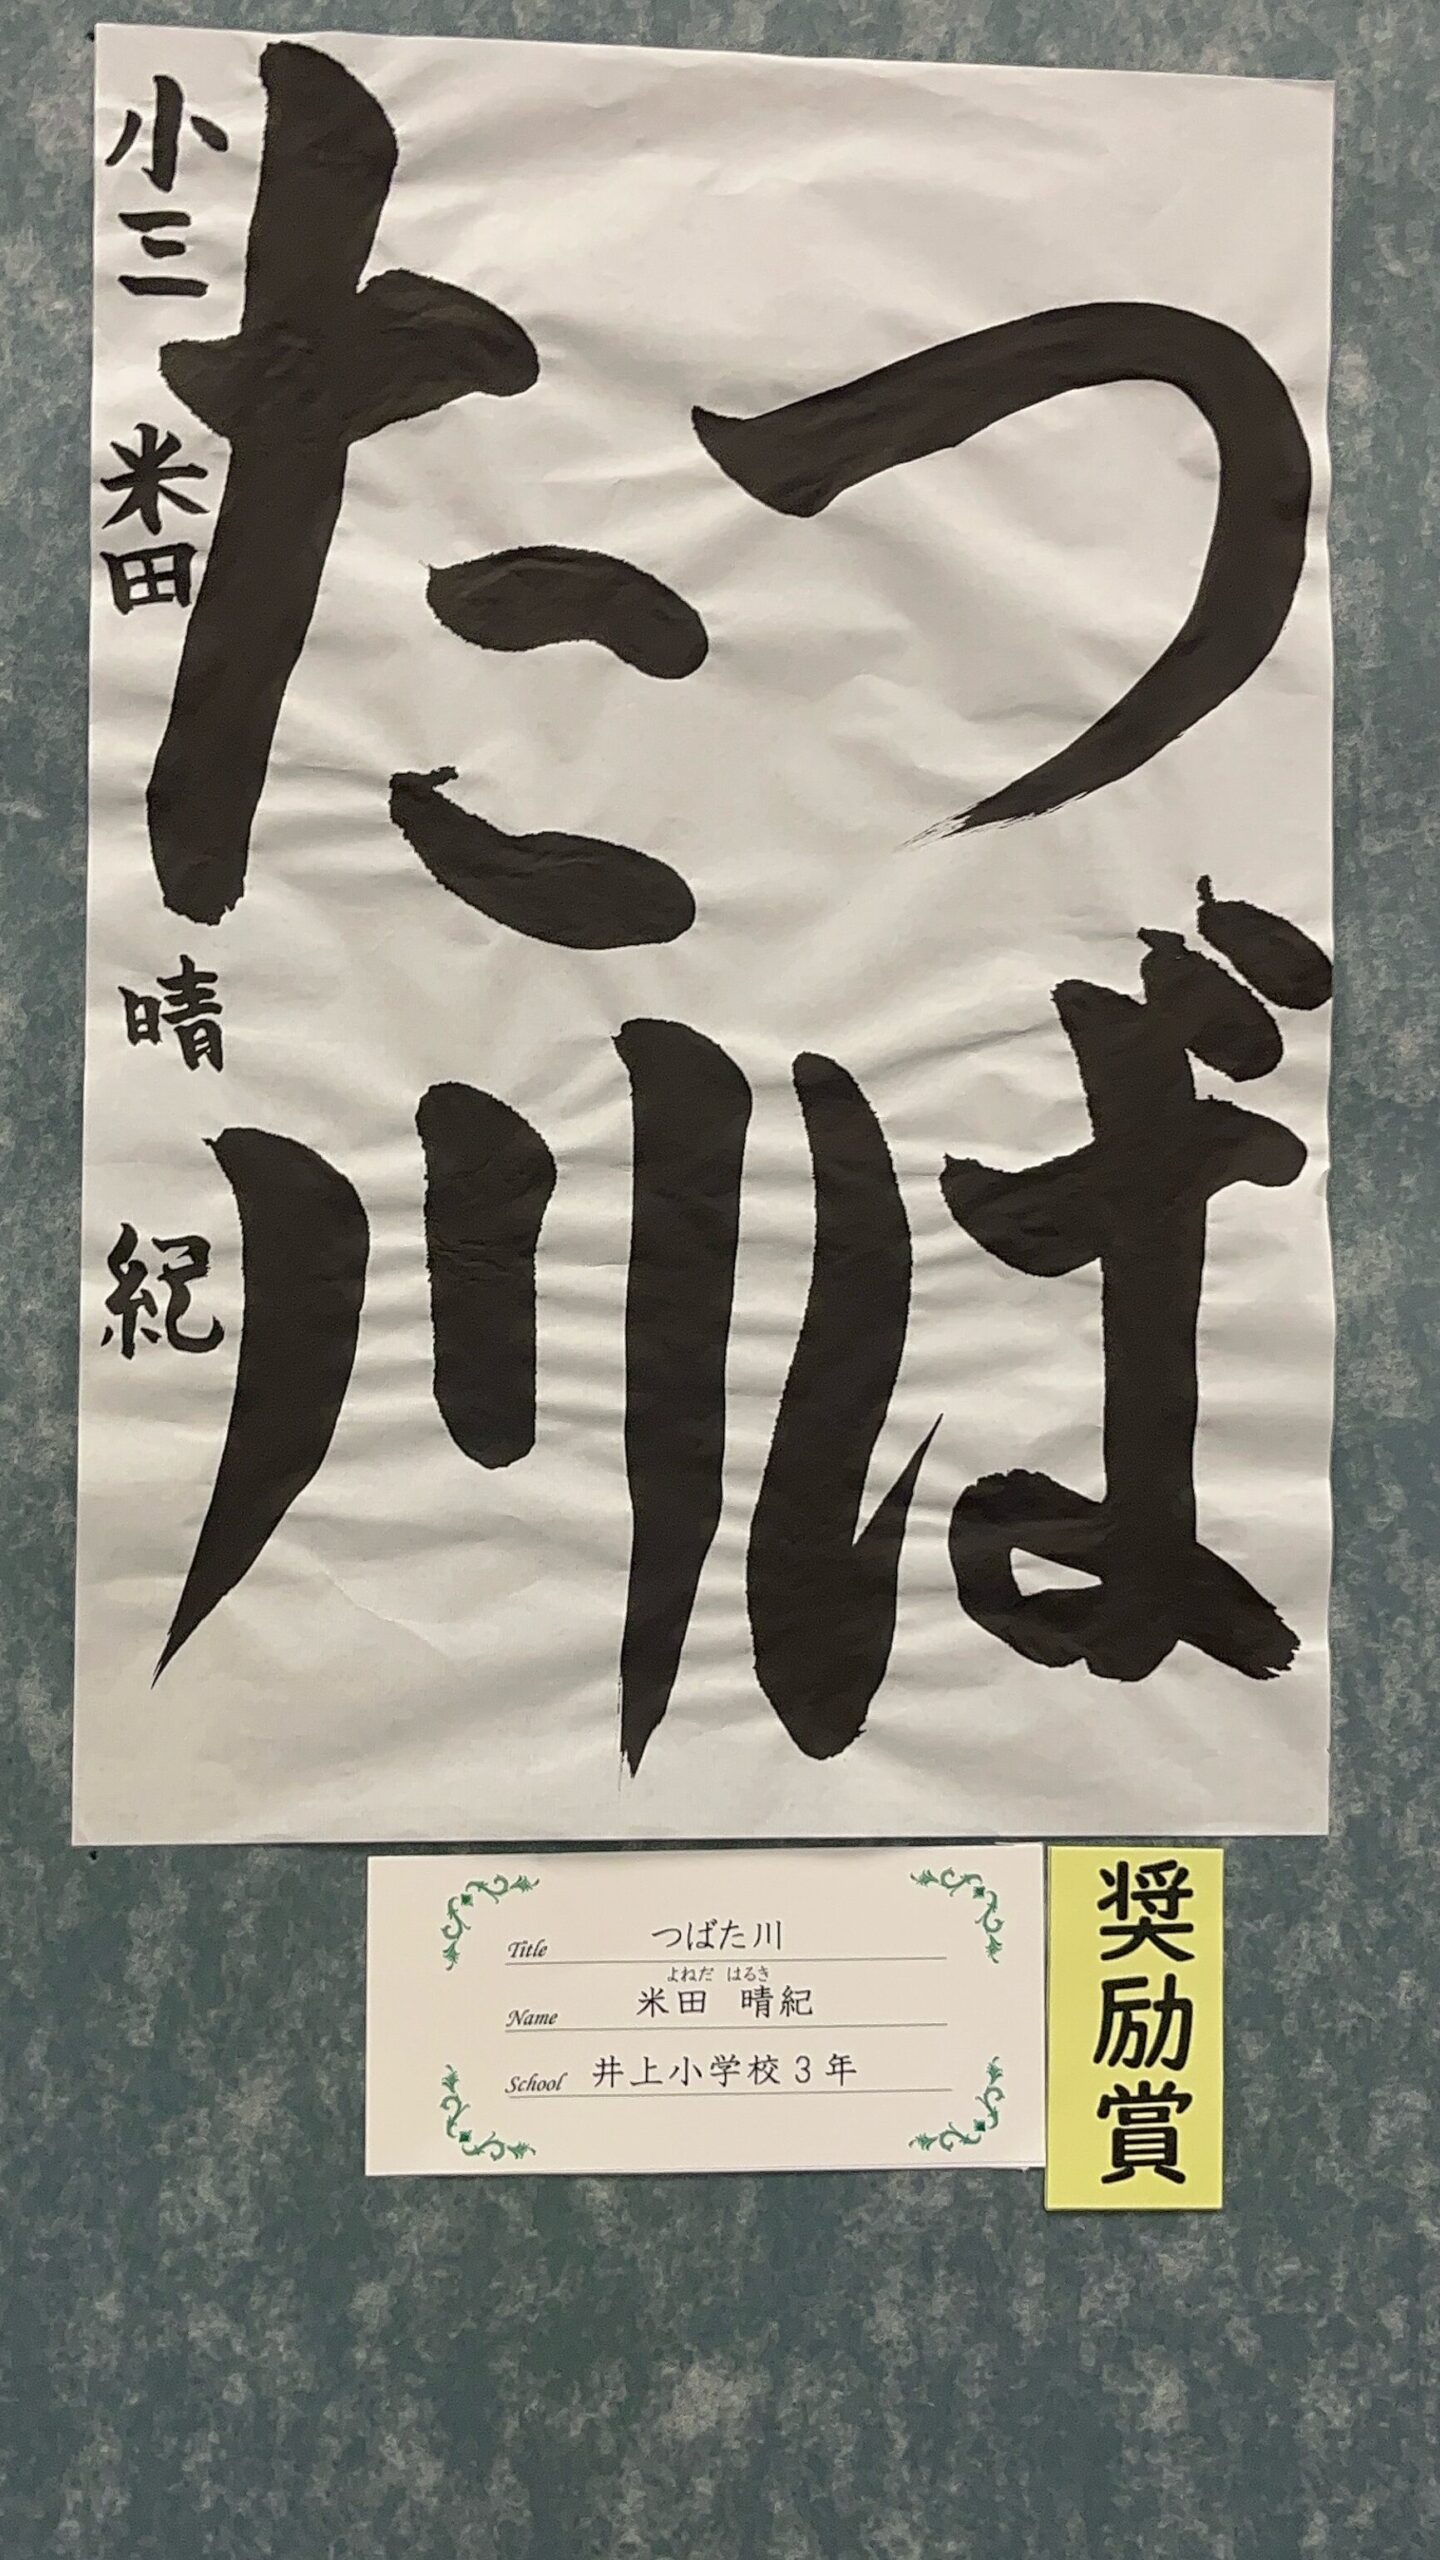 つば
た川
小三 米田 晴紀
Title つばた川
よねだ はるき
Name 米田 晴紀
School 井上小学校3年
奨励賞